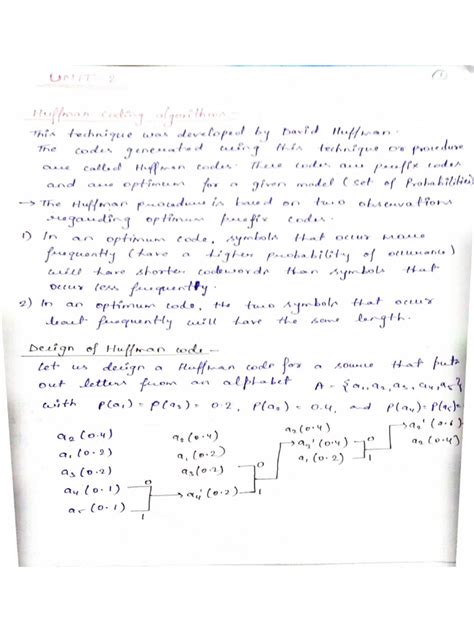 UNIT-2
Huffman coding algorithms:-
This technique was developed by David Huffman.
The codes generated using this technique or procedure
are called Huffman codes. These codes are prefix codes
and are optimum for a given model (set of Probabilities)
→ The Huffman procedure is based on two observations
regarding optimum prefix codes.
1) In an optimum code, symbols that occur more
frequently (have a higher probability of occurrence)
will have shorter codewords than symbols that
occur less frequently.
2) In an optimum code, the two symbols that occur
least frequently will have the same length.
Design of Huffman code -
Let us design a Huffman code for a source that puts
out letters from an alphabet A = {a1, a2, a3, a4, a5}
with P(a1) = P(a3) = 0.2, P(a2) = 0.4, and P(a4) = P(a5)=
a2 (0.4) a2 (0.4) a2 (0.4)
a1 (0.2) a1 (0.2) a3' (0.4) 0
a3 (0.2) a3 (0.2) 0 a1 (0.2) 1
a4 (0.1) 0 → a4' (0.2) 1
a5 (0.1) 1
a2 (0.4)